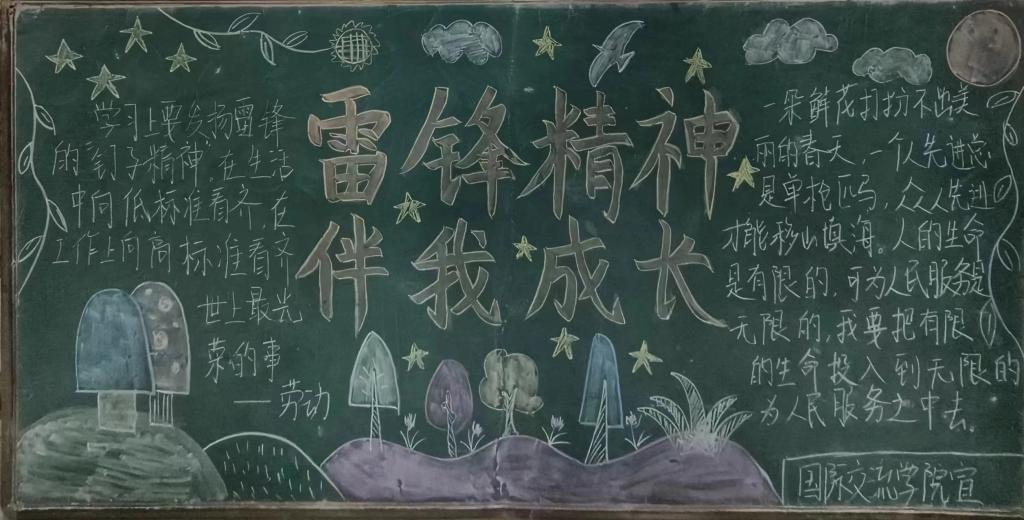 雷锋精神
伴我成长
学习上要发扬雷锋
的“钉子精神”在生活
中向低标准看齐,在
工作上向高标准看齐
世上最光
荣的事
——劳动
一朵鲜花打扮不出美
丽的春天,一个人先进总
是单枪匹马,众人先进
才能移山填海。人的生命
是有限的,可为人民服务是
无限的,我要把有限
的生命投入到无限的
为人民服务之中去。
国际交流学院宣